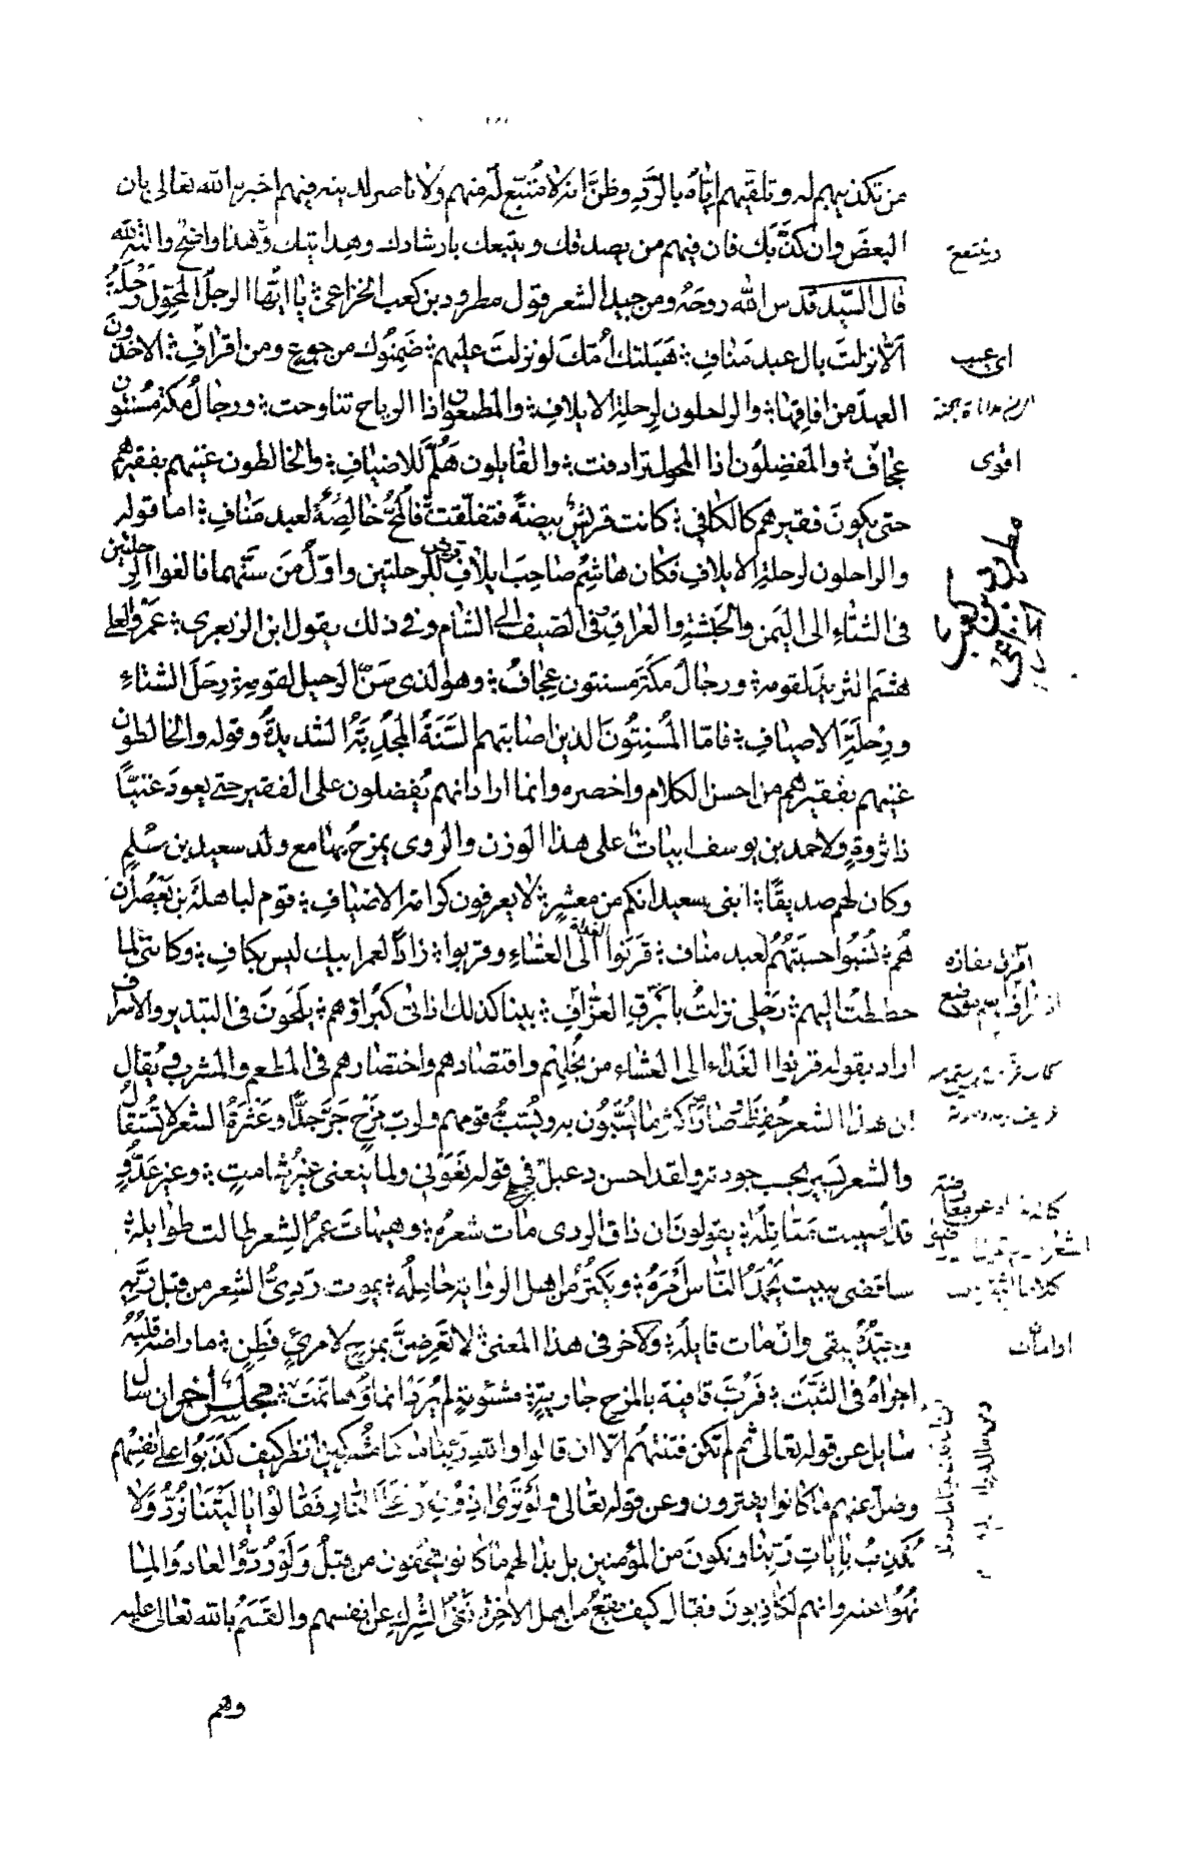 من تكذيبهم له وتلقيهم إيّاه بالرّد وظنّ انه لا متّبع له منهم ولا ناصر لدينه فيهم اخبره الله تعالى بان
البعض وان كذّبك فان فيهم من يصدقك ويتبعك بارشادك وهدايتك وهذا واضح والمنة لله
قال السيّد قدس الله روحه ومن جيد الشعر قول مطرود بن كعب الخزاعي ؛ يا ايّها الرجل المحوّل رحله ؛
ألّا نزلت بال عبد مناف ؛ هبلتك أمّك لو نزلت عليهم ؛ ضمنوك من جوع ومن اقراف ؛ الاخذون
العهد من افاقها ؛ والراحلون لرحلة الايلاف ؛ والمطعون اذا الرياح تناوحت ؛ ورجال مكة مسنتون
عجاف ؛ والمفضلون اذا المحول ترادفت ؛ والقايلون هلمّ للاضياف ؛ والخالطون غنيهم بفقيرهم
حتى يكون فقيرهم كالكافي ؛ كانت قريش بيضة فتفلّقت ؛ فالمحّ خالصة لعبد مناف ؛ اما قوله
والراحلون لرحلة الايلاف فكان هاشم صاحب ايلاف قريش للرحلتين واوّل من سنّهما فالفوا الرحلتين
في الشتاء الى اليمن والحبشة والعراق وفى الصيف الى الشام وفي ذلك يقول ابن الزبعري ؛ عمرو العلى
هشم الثريد لقومه ؛ ورجال مكّة مسنتون عجاف ؛ وهو الذى سنّ الرحيل لقومه ؛ رحل الشتاء
ورحلة الاصياف ؛ فامّا المسنتون الذين اصابتهم السّنة المجدبة الشديدة وقوله والخالطون
غنيهم بفقيرهم من احسن الكلام واخصره وانما اراد انهم يفضلون على الفقير حتى يعود غنيّا
ذا ثروة ولاحمد بن يوسف ابيات على هذا الوزن والروى يمزح بها مع ولد سعيد بن سلم
وكان لهم صديقا ؛ ابنى سعيد انكم من معشر ؛ لا يعرفون كرامة الاضياف ؛ قوم لباهلة بن يعصر ان
هم ؛ نسبوا حسبتهم لعبد مناف ؛ قرنوا الغداء الى العشاء وقربوا ؛ زادا لعمر ابيك ليس بكاف ؛ وكانني لما
حططت اليهم ؛ رحلى نزلت بابرق العزاف ؛ بينا كذلك اتانى كبراؤهم ؛ يلحون فى التبذير والاسراف
اراد بقوله قرنوا الغداء الى العشاء من بخلهم واقتصادهم واختصارهم في المطعم والمشرب ويقال
ان هذا الشعر حفظ وصار اكثر ما يسبّون به ويسبّ قومهم ولرب مزح جرّ جدّا وعثرة الشعر لا تستقال
والشعر يسير بحسب جودته ولقد احسن دعبل في قوله نعوني ولما ينعنى غير شامت ؛ وغير عدوّ
قد أصيبت مقاتله ؛ يقولون ان ذاق الردى مات شعره ؛ وهيهات عمر الشعر طالت طوايله ؛
ساقضى ببيت يحمد الناس امره ؛ ويكثر من اهل الرواية حامله ؛ يموت ردىّ الشعر من قبل ربّه
وجيّده يبقى وان مات قايله ؛ ولاخر فى هذا المعنى ؛ لا تعرضنّ بمزح لامرئ فطن ؛ ما راضه قلبه
اجراه في الثبت ؛ فربّ قافية بالمزح جارية ؛ مشئومة لم يرد انماؤها نمت ؛ مجلس آخر ان سال
سايل عن قوله تعالى ثم لم تكن فتنتهم الّا ان قالوا والله ربّنا ما كنا مشركين انظر كيف كذبوا على انفسهم
وضلّ عنهم ما كانوا يفترون وعن قوله تعالى ولو ترى اذ وقفوا على النار فقالوا يا ليتنا نردّ ولا
نكذب بآيات ربّنا ونكون من المؤمنين بل بدا لهم ما كانوا يخفون من قبل ولو ردّوا لعادوا لما
نهوا عنه وانهم لكاذبون فقال كيف يقع من اهل الآخرة نفى الشرك عن انفسهم والقسم بالله تعالى عليه
وهم
اى عيب
اقوى
مطرود بن كعب الخزاعي